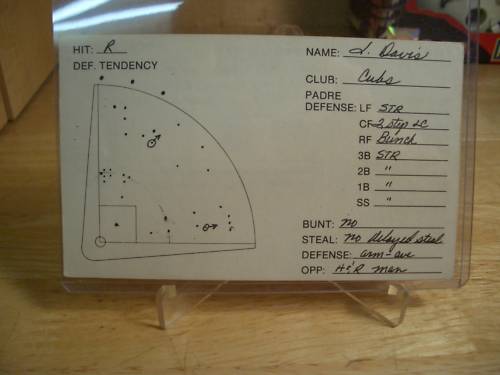 HIT: R
DEF. TENDENCY
NAME: J. Davis
CLUB: Cubs
PADRE
DEFENSE: LF STR
CF 2 step LC
RF Bunch
3B STR
2B "
1B "
SS "
BUNT: no
STEAL: no delayed steal
DEFENSE: arm - ave
OPP: H&R man